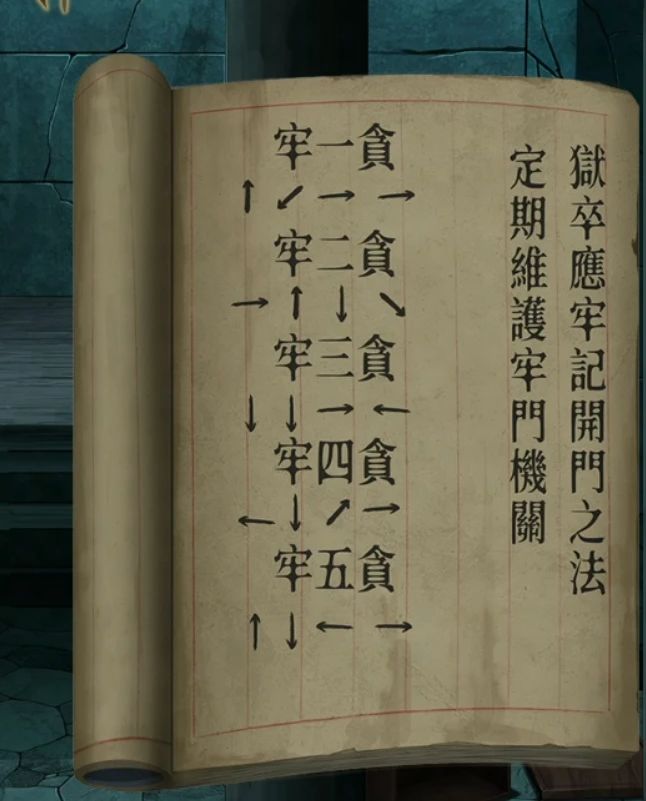 獄卒應牢記開門之法
定期維護牢門機關
貪一牢
→→↙↑
貪二牢
↘↓↑→
貪三牢
←→↓↓
貪四牢
→↗↓←
貪五牢
→←↓↑